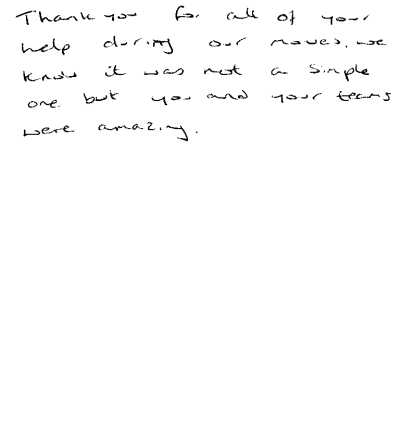 Thank you for all of your
help during our moves, we
know it was not a simple
one but you and your teams
were amazing.